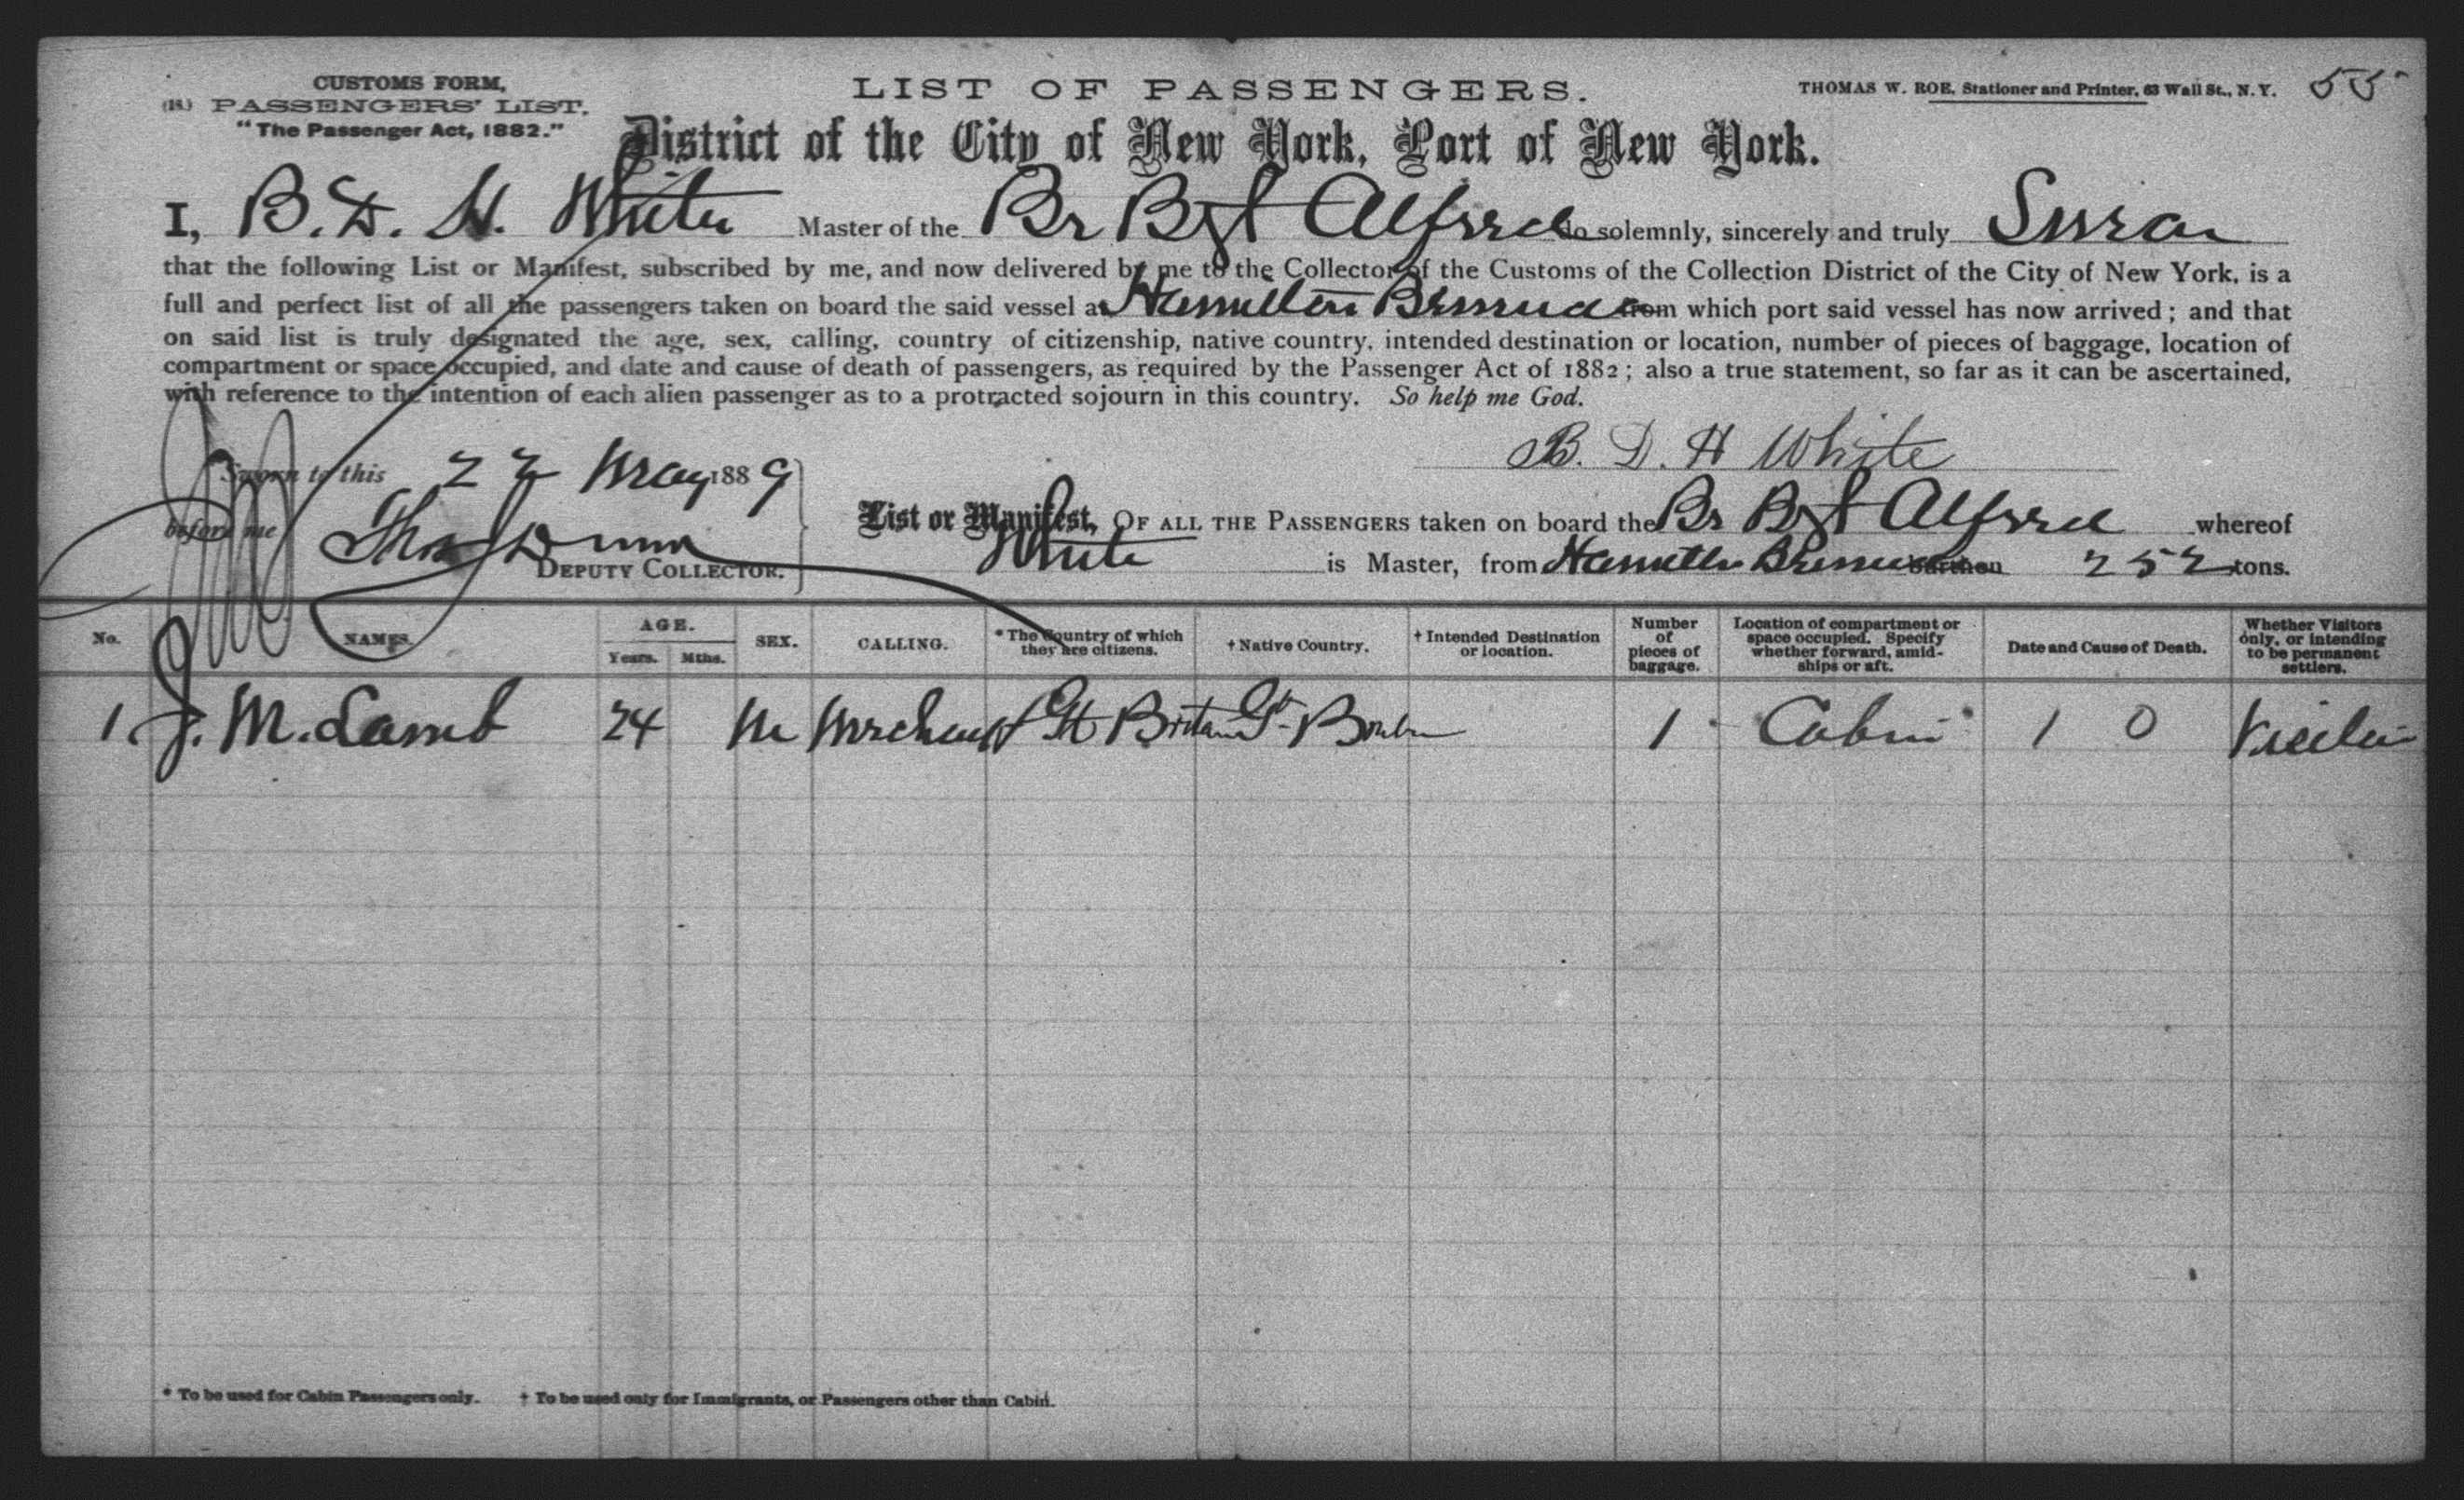 CUSTOMS FORM,
(18.) PASSENGERS' LIST.
"The Passenger Act, 1882."
LIST OF PASSENGERS.
THOMAS W. ROE, Stationer and Printer, 63 Wall St., N. Y. 55
District of the City of New York, Port of New York.
I, B. D. H. White Master of the Br Bgt Alfred do solemnly, sincerely and truly Swear
that the following List or Manifest, subscribed by me, and now delivered by me to the Collector of the Customs of the Collection District of the City of New York, is a
full and perfect list of all the passengers taken on board the said vessel at Hamilton Bermuda from which port said vessel has now arrived; and that
on said list is truly designated the age, sex, calling, country of citizenship, native country, intended destination or location, number of pieces of baggage, location of
compartment or space occupied, and date and cause of death of passengers, as required by the Passenger Act of 1882; also a true statement, so far as it can be ascertained,
with reference to the intention of each alien passenger as to a protracted sojourn in this country. So help me God.
B. D. H White
Sworn to this 22 May 1889
before me Thos Dunn
DEPUTY COLLECTOR.
List or Manifest, OF ALL THE PASSENGERS taken on board the Br Bgt Alfred whereof
White is Master, from Hamilton Bermuda burthen 252 tons.
No. NAMES. AGE. Years. Mths. SEX. CALLING. * The Country of which they are citizens. † Native Country. † Intended Destination or location. Number of pieces of baggage. Location of compartment or space occupied. Specify whether forward, amidships or aft. Date and Cause of Death. Whether Visitors only, or intending to be permanent settlers.
1. J. M. Lamb 24 M Merchant Gt Britain Gt Britain 1 Cabin 1 0 Visitor
* To be used for Cabin Passengers only. † To be used only for Immigrants, or Passengers other than Cabin.